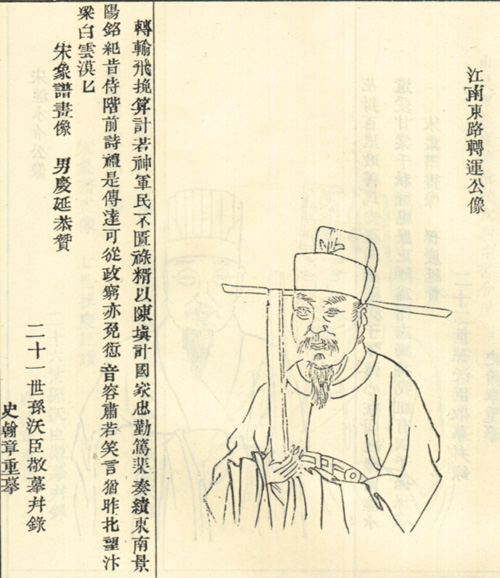 江南東路轉運公像
轉輸飛挽算計若神軍民不匱祿糈以陳塡計國家忠勤篤棐奏績東南景
陽銘紀昔侍階前詩禮是傳達可從政窮亦免愆音容肅若笑言猶昨北望汴
梁白雲漠匕
宋象譜畫像 男慶延恭贊
二十一世孫沃臣敬摹幷錄
史翰章重摹